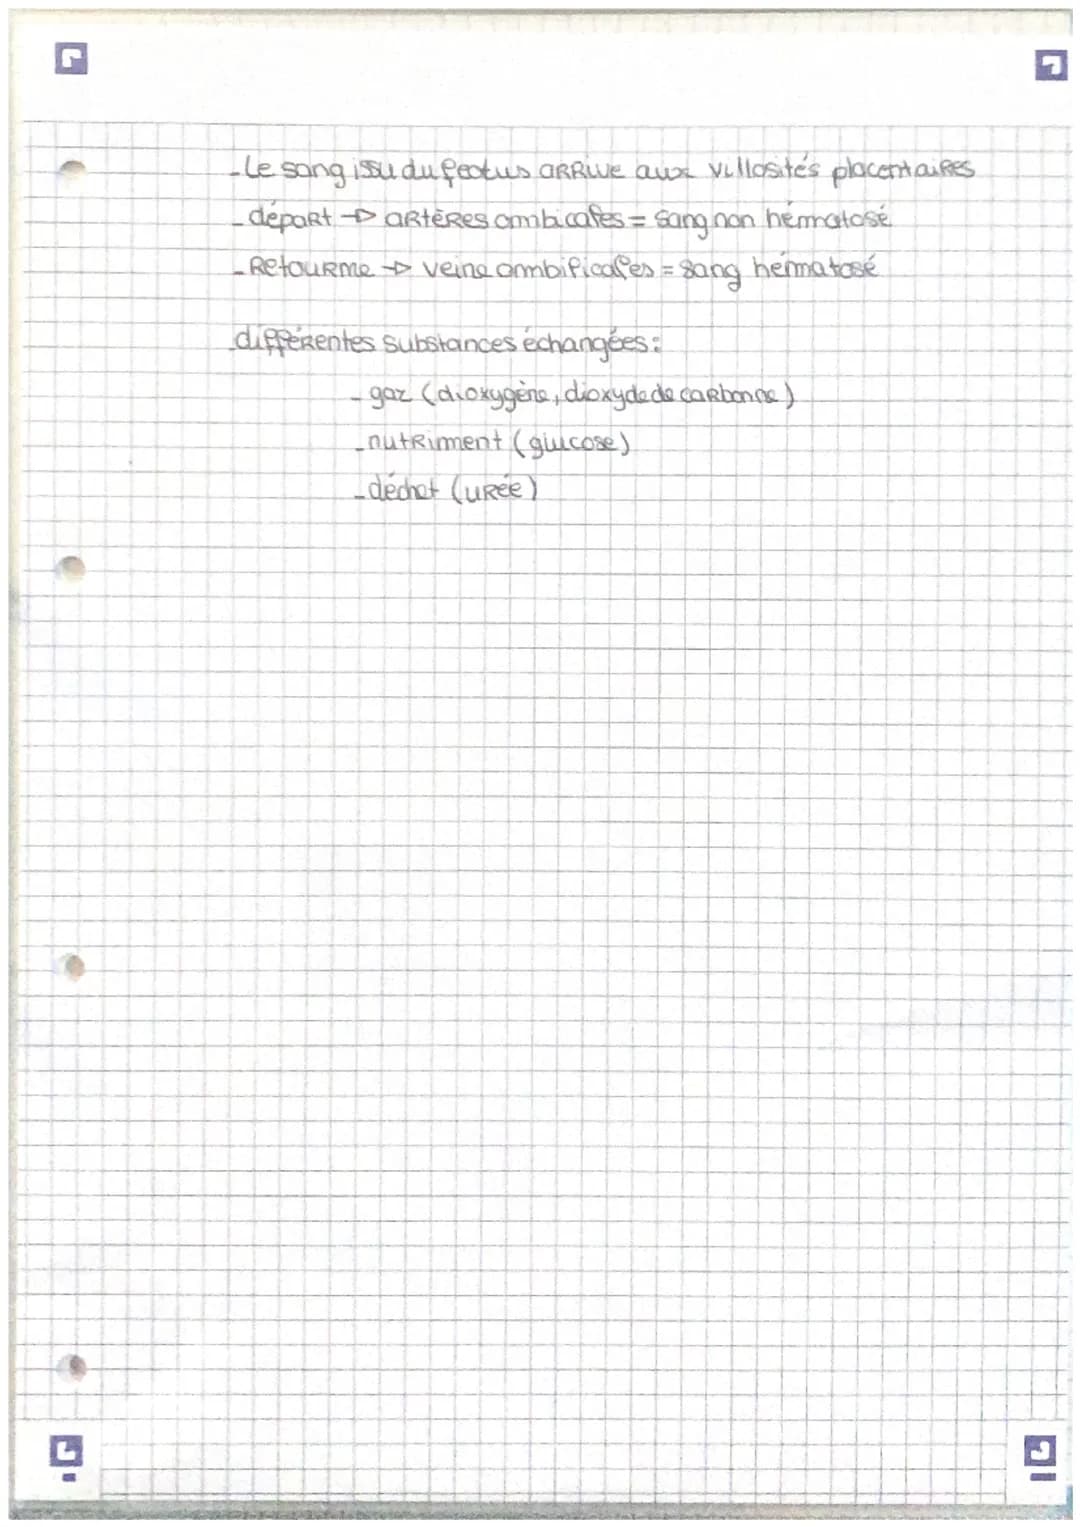 - Le sang issu du feotus arrive aux villosités placentaires
- départ → artères ombicales = sang non hématosé
- Retourme → veine ombificales = sang hématosé
différentes substances échangées :
- gaz (dioxygène, dioxyde de carbonne)
- nutriment (glucose)
- déchet (urée)